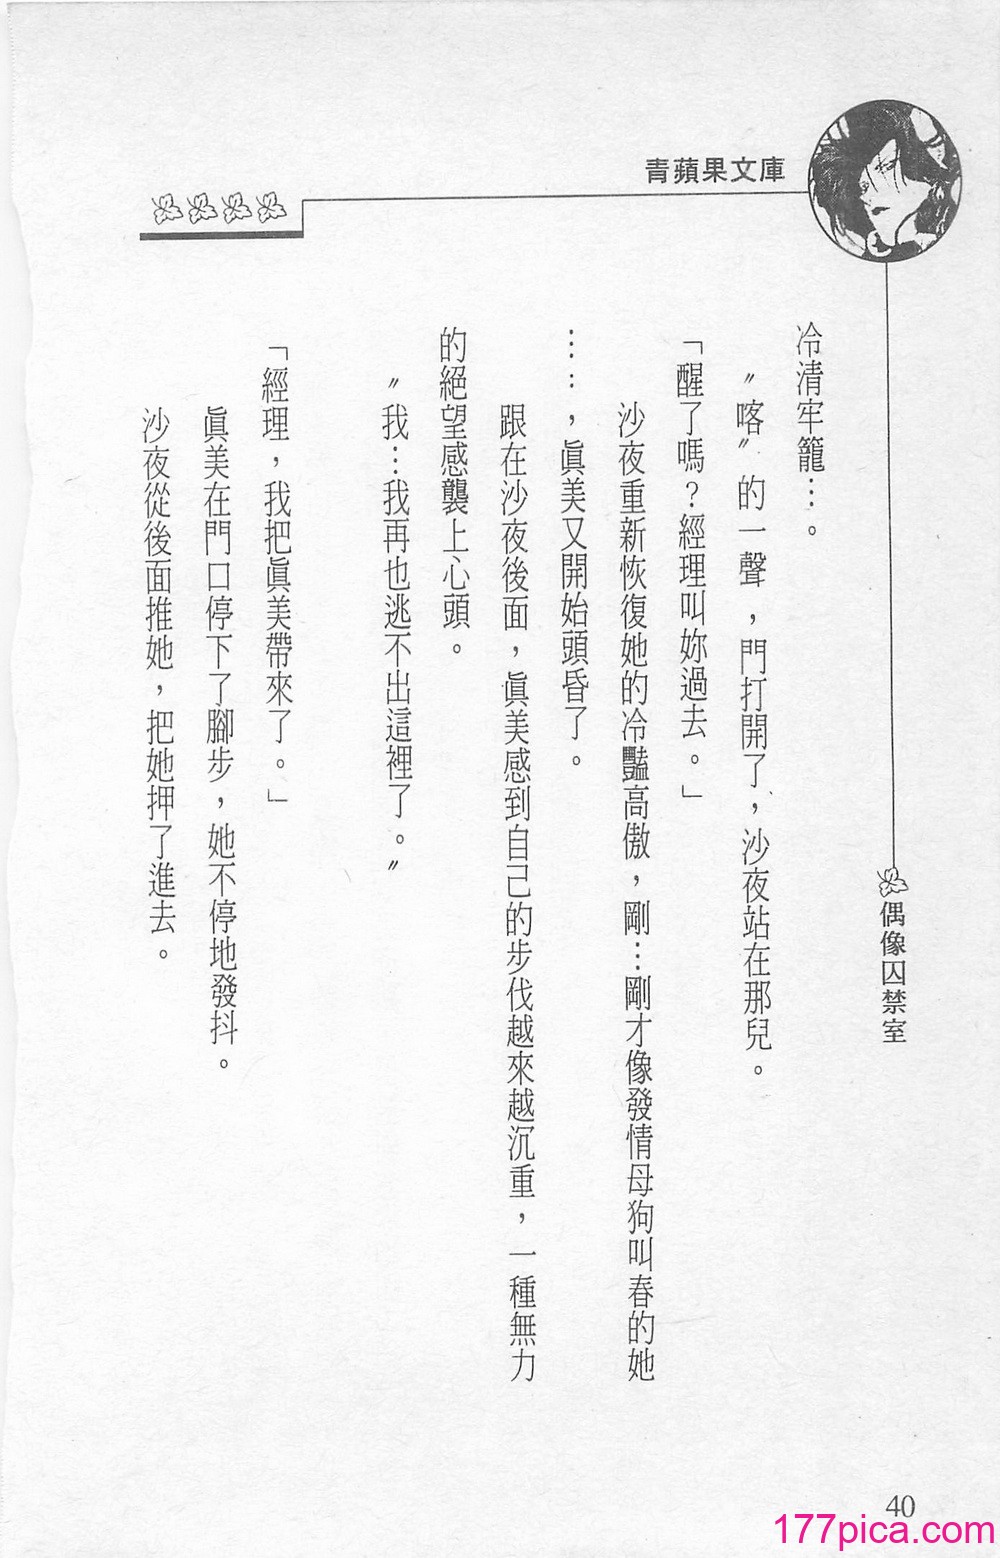 青蘋果文庫
偶像囚禁室
冷清牢籠…。
〝喀〞的一聲，門打開了，沙夜站在那兒。
「醒了嗎？經理叫妳過去。」
沙夜重新恢復她的冷豔高傲，剛…剛才像發情母狗叫春的她
……，眞美又開始頭昏了。
跟在沙夜後面，眞美感到自己的步伐越來越沉重，一種無力
的絕望感襲上心頭。
〝我…我再也逃不出這裡了。〞
「經理，我把眞美帶來了。」
眞美在門口停下了腳步，她不停地發抖。
沙夜從後面推她，把她押了進去。
40
177pica.com